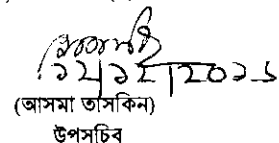 ১২|১২|২০১১
(আসমা তাসকিন)
উপসচিব